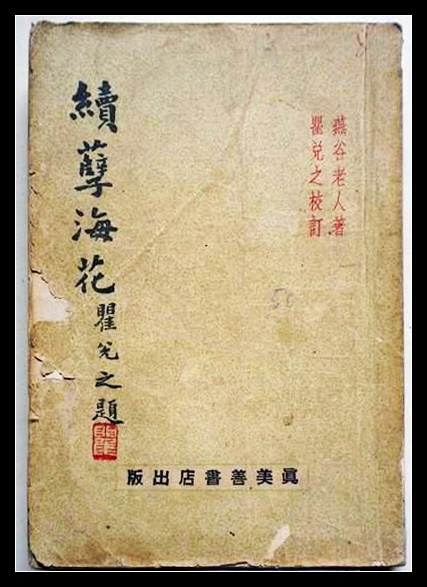 燕谷老人著
瞿兌之校訂
續孽海花
瞿兌之題
眞美善書店出版